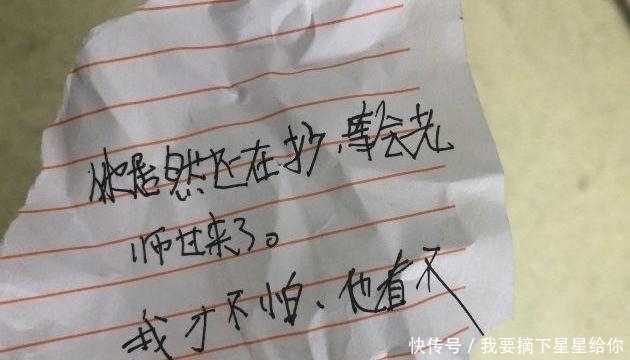 他居然还在抄,等会老
师进来了。
我才不怕、他看不
快传号 / 我要摘下星星给你